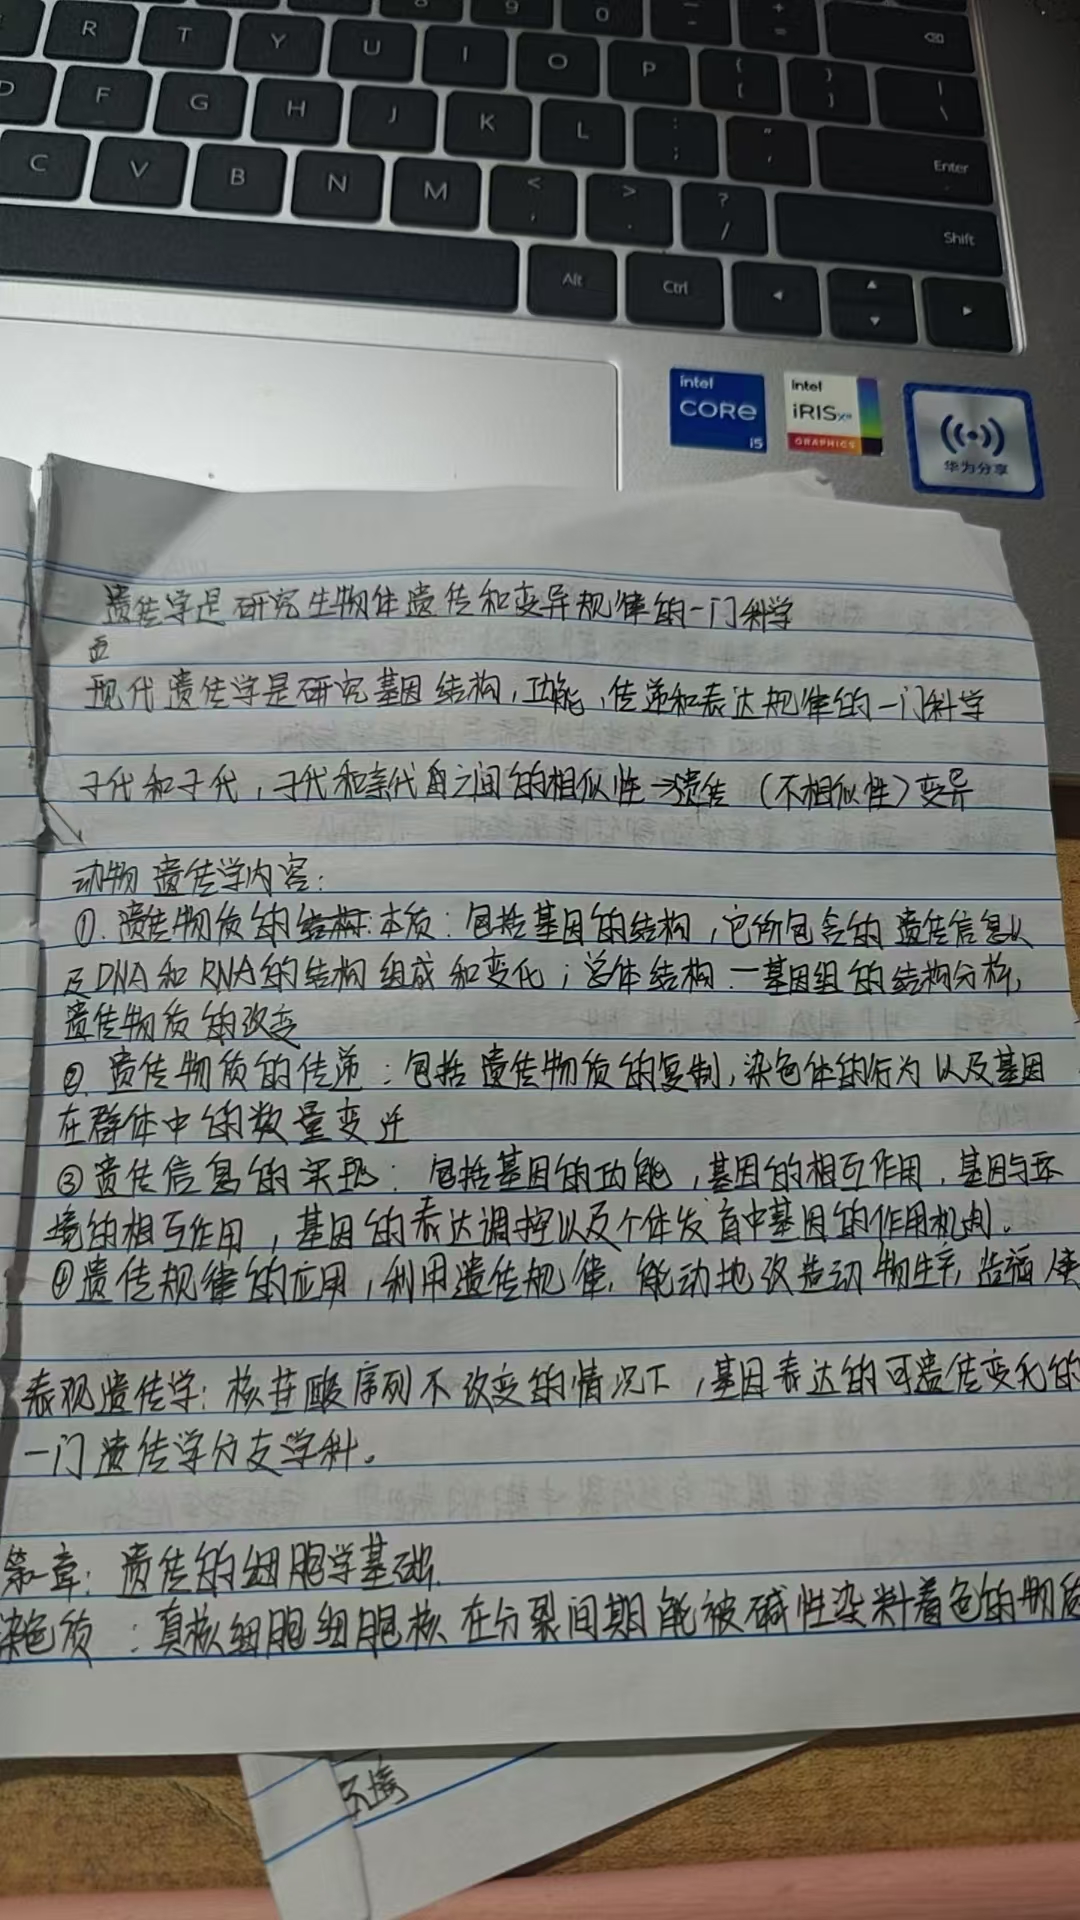 8 9 0 - _ + =
R T Y U I O P { [ } ] | \
D F G H J K L : ; " ' Enter
C V B N M < , > . ? / Shift
Alt Ctrl
intel CORE i5
intel iRIS Xe GRAPHICS
华为分享
遗传学是研究生物体遗传和变异规律的一门科学
现代遗传学是研究基因结构,功能,传递和表达规律的一门科学
子代和子代,子代和亲代之间的相似性→遗传 (不相似性)变异
动物遗传学内容:
①.遗传物质的结构本质:包括基因的结构,它所包含的遗传信息以
及DNA和RNA的结构组成和变化;总体结构—基因组的结构分析,
遗传物质的改变
②.遗传物质的传递:包括遗传物质的复制,染色体的行为以及基因
在群体中的数量变迁
③遗传信息的实现:包括基因的功能,基因的相互作用,基因与环
境的相互作用,基因的表达调控以及个体发育中基因的作用机制.
④遗传规律的应用,利用遗传规律,能动地改造动物生产,造福
表观遗传学:核苷酸序列不改变的情况下,基因表达的可遗传变化的
一门遗传学分支学科。
第一章:遗传的细胞学基础.
染色质:真核细胞细胞核在分裂间期能被碱性染料着色的物质